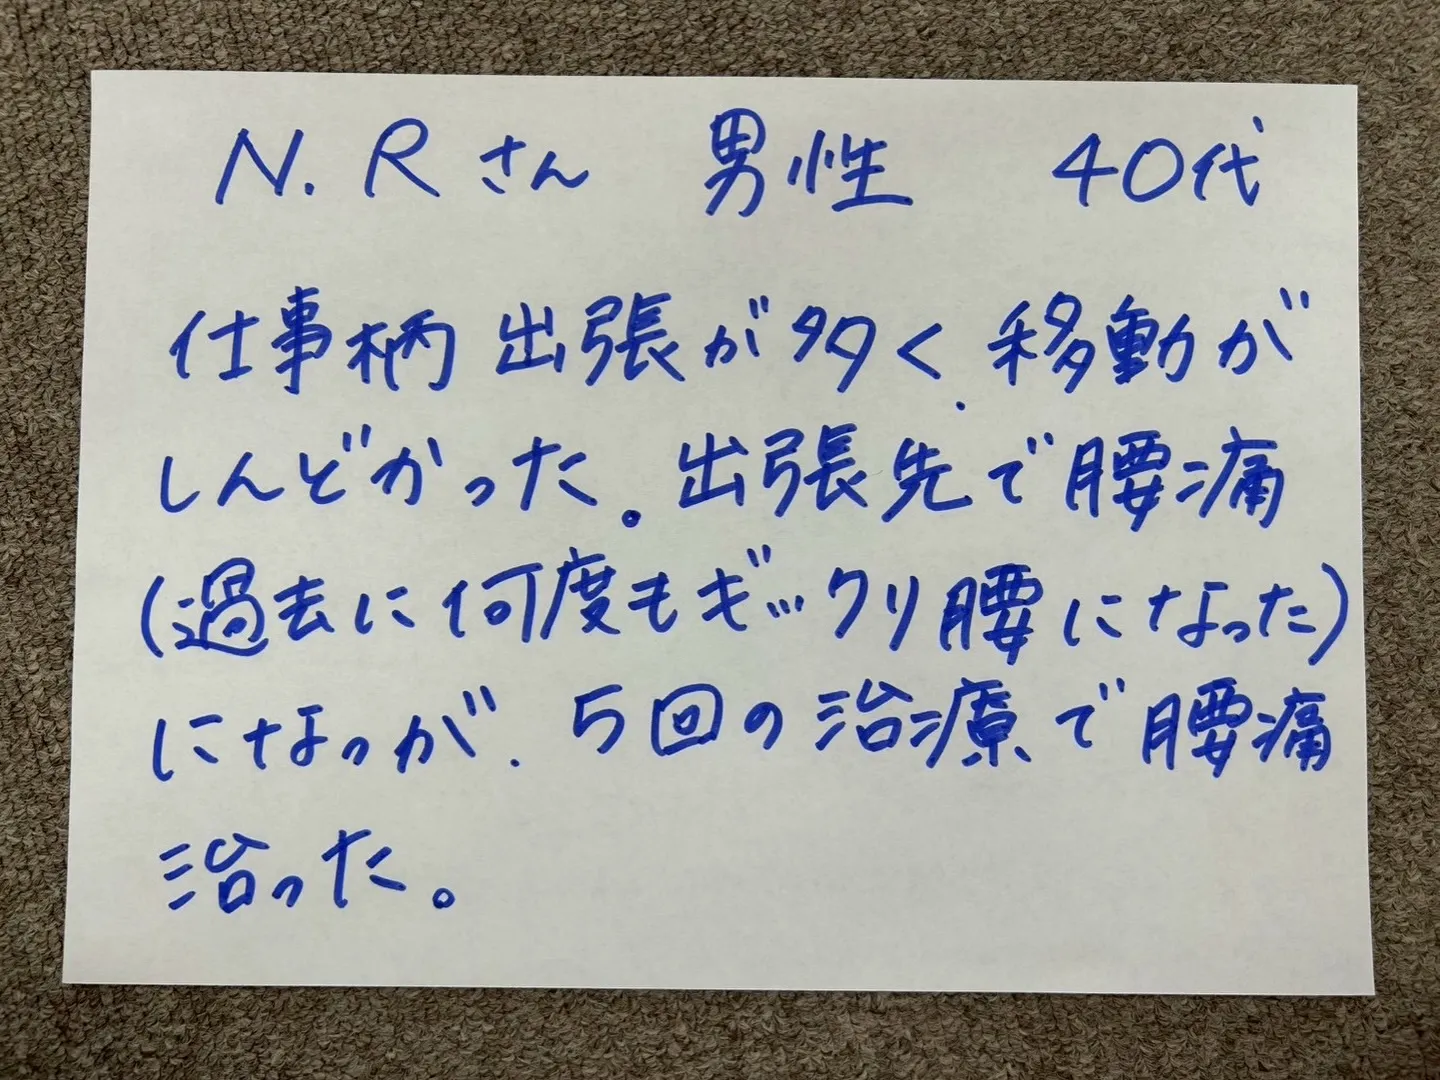 N.Rさん 男性 40代
仕事柄 出張が多く、移動が
しんどかった。出張先で腰痛
(過去に何度もギックリ腰になった)
になっが、5回の治療で腰痛
治った。